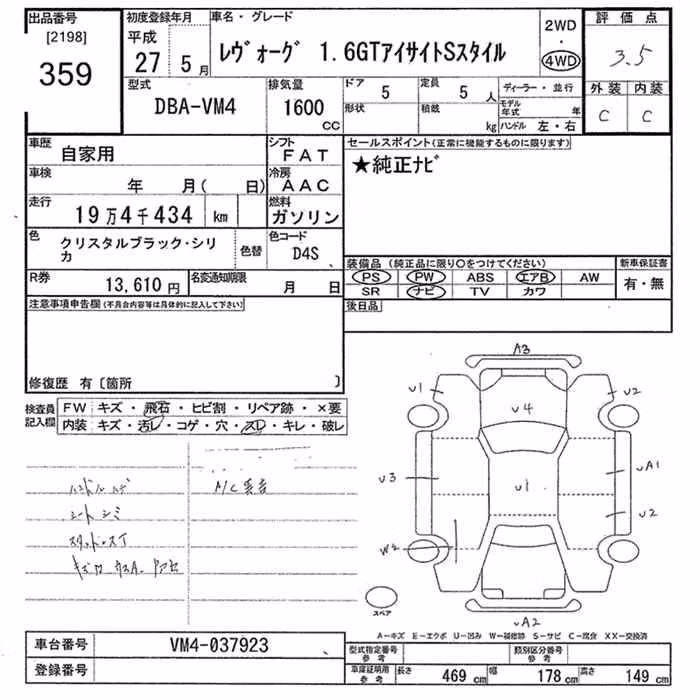 出品番号
[2198]
359
初度登録年月
平成
27 5月
車名・グレード
ﾚｳﾞｫｰｸﾞ 1.6GTアイサイトSスタイル
2WD
・
4WD
評価点
3.5
外装 内装
C C
型式
DBA-VM4
排気量
1600
CC
ドア
5
形状
定員
5人
積載
kg
ディーラー・並行
モデル年式 年
ハンドル 左・右
車歴
自家用
シフト
FAT
車検
年 月( 日)
冷房
AAC
走行
19万4千434 km
燃料
ガソリン
色
クリスタルブラック・シリカ
色替
色コード
D4S
R券
13,610円
名変通知期限
月 日
セールスポイント(正常に機能するものに限ります)
★純正ﾅﾋﾞ
装備品 (純正品に限り○をつけてください)
PS PW ABS エアB AW
SR ナビ TV カワ
新車保証書
有・無
注意事項申告欄(不具合内容等は具体的に記入して下さい)
後日品
修復歴 有〔箇所 〕
検査員記入欄
FW キズ・飛石・ヒビ割・リペア跡・×要
内装 キズ・汚レ・コゲ・穴・スレ・キレ・破レ
A/C異音
シートシミ
A3
U1
U2
U4
U3
U1
UA1
U2
W2
UA2
スペア
A－キズ E－エクボ U－凹み W－補修跡 S－サビ C－腐食 XX－交換済
車台番号
VM4-037923
登録番号
型式指定番号
参考
類別区分番号
参考
車庫証明用
参考
長さ 469cm 幅 178cm 高さ 149cm